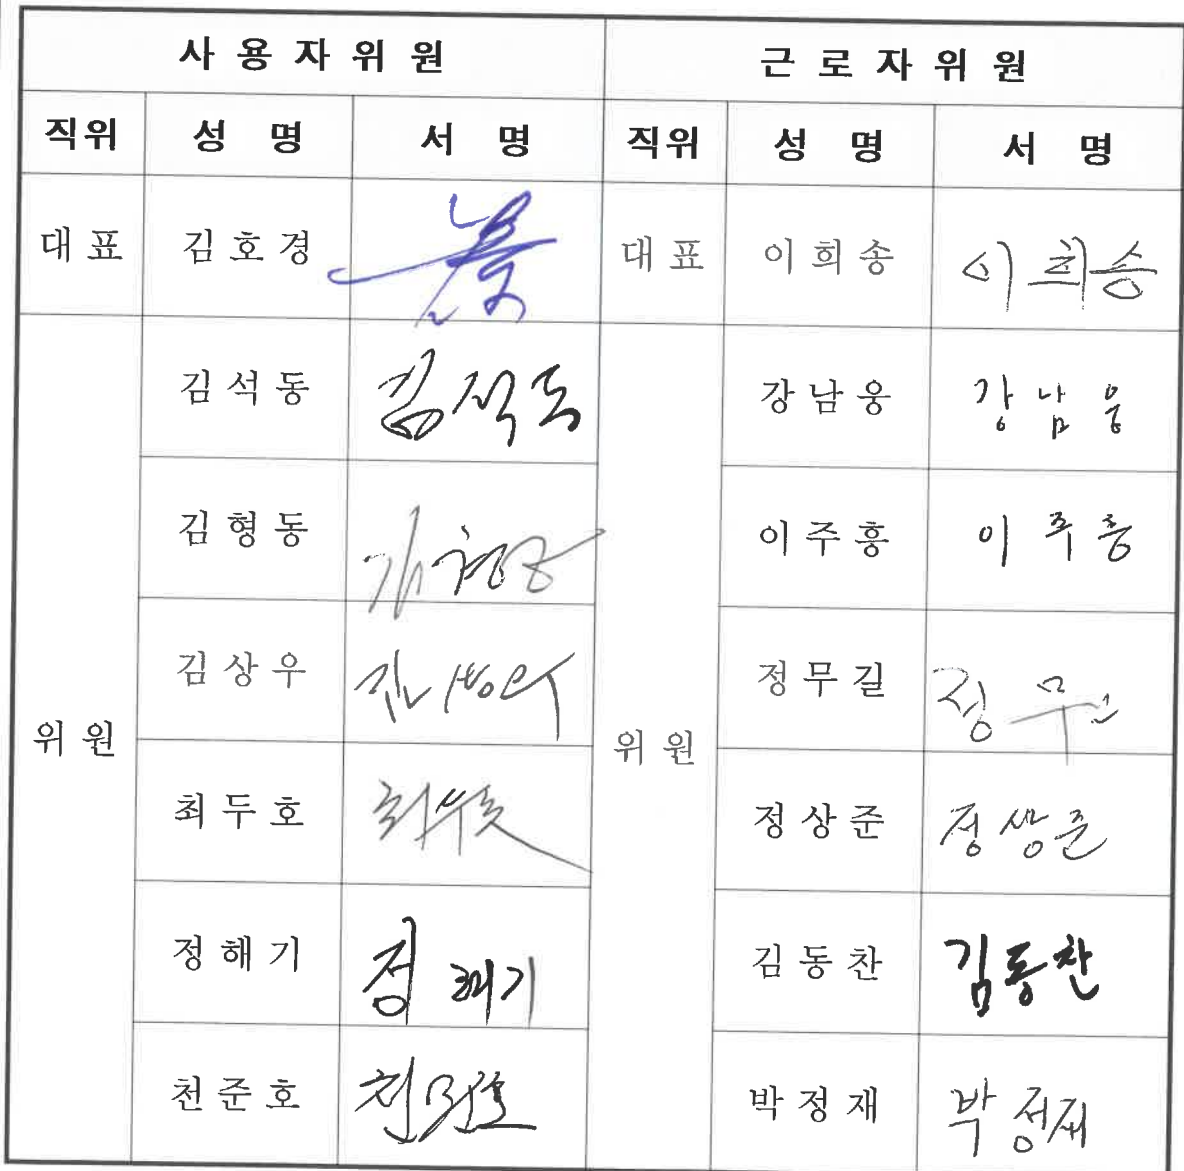 사용자위원 근로자위원
직위 성 명 서 명 직위 성 명 서 명
대표 김호경 대표 이희송 이희송
김석동 김석동 강남웅 강남웅
김형동 김형동 이주흥 이주흥
김상우 김상우 정무길 정무길
위원 위원
최두호 최두호 정상준 정상준
정해기 정해기 김동찬 김동찬
천준호 천준호 박정재 박정재